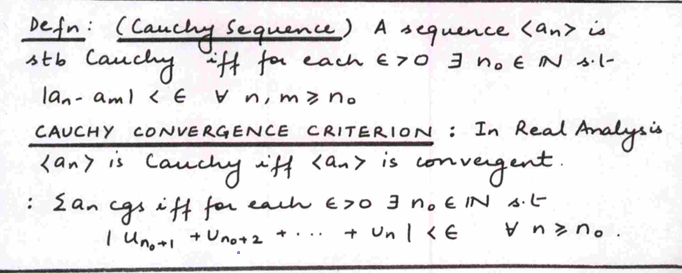 Defn: (Cauchy Sequence) A sequence <an> is
stb Cauchy iff for each ϵ>0 ∃ n₀ ∈ ℕ s.t
|an - am| < ϵ ∀ n, m ⩾ n₀
CAUCHY CONVERGENCE CRITERION : In Real Analysis
<an> is Cauchy iff <an> is convergent.
: Σan cgs iff for each ϵ>0 ∃ n₀ ∈ ℕ s.t
| Uₙ₀₊₁ + Uₙ₀₊₂ + ... + Un | < ϵ ∀ n ⩾ n₀ .